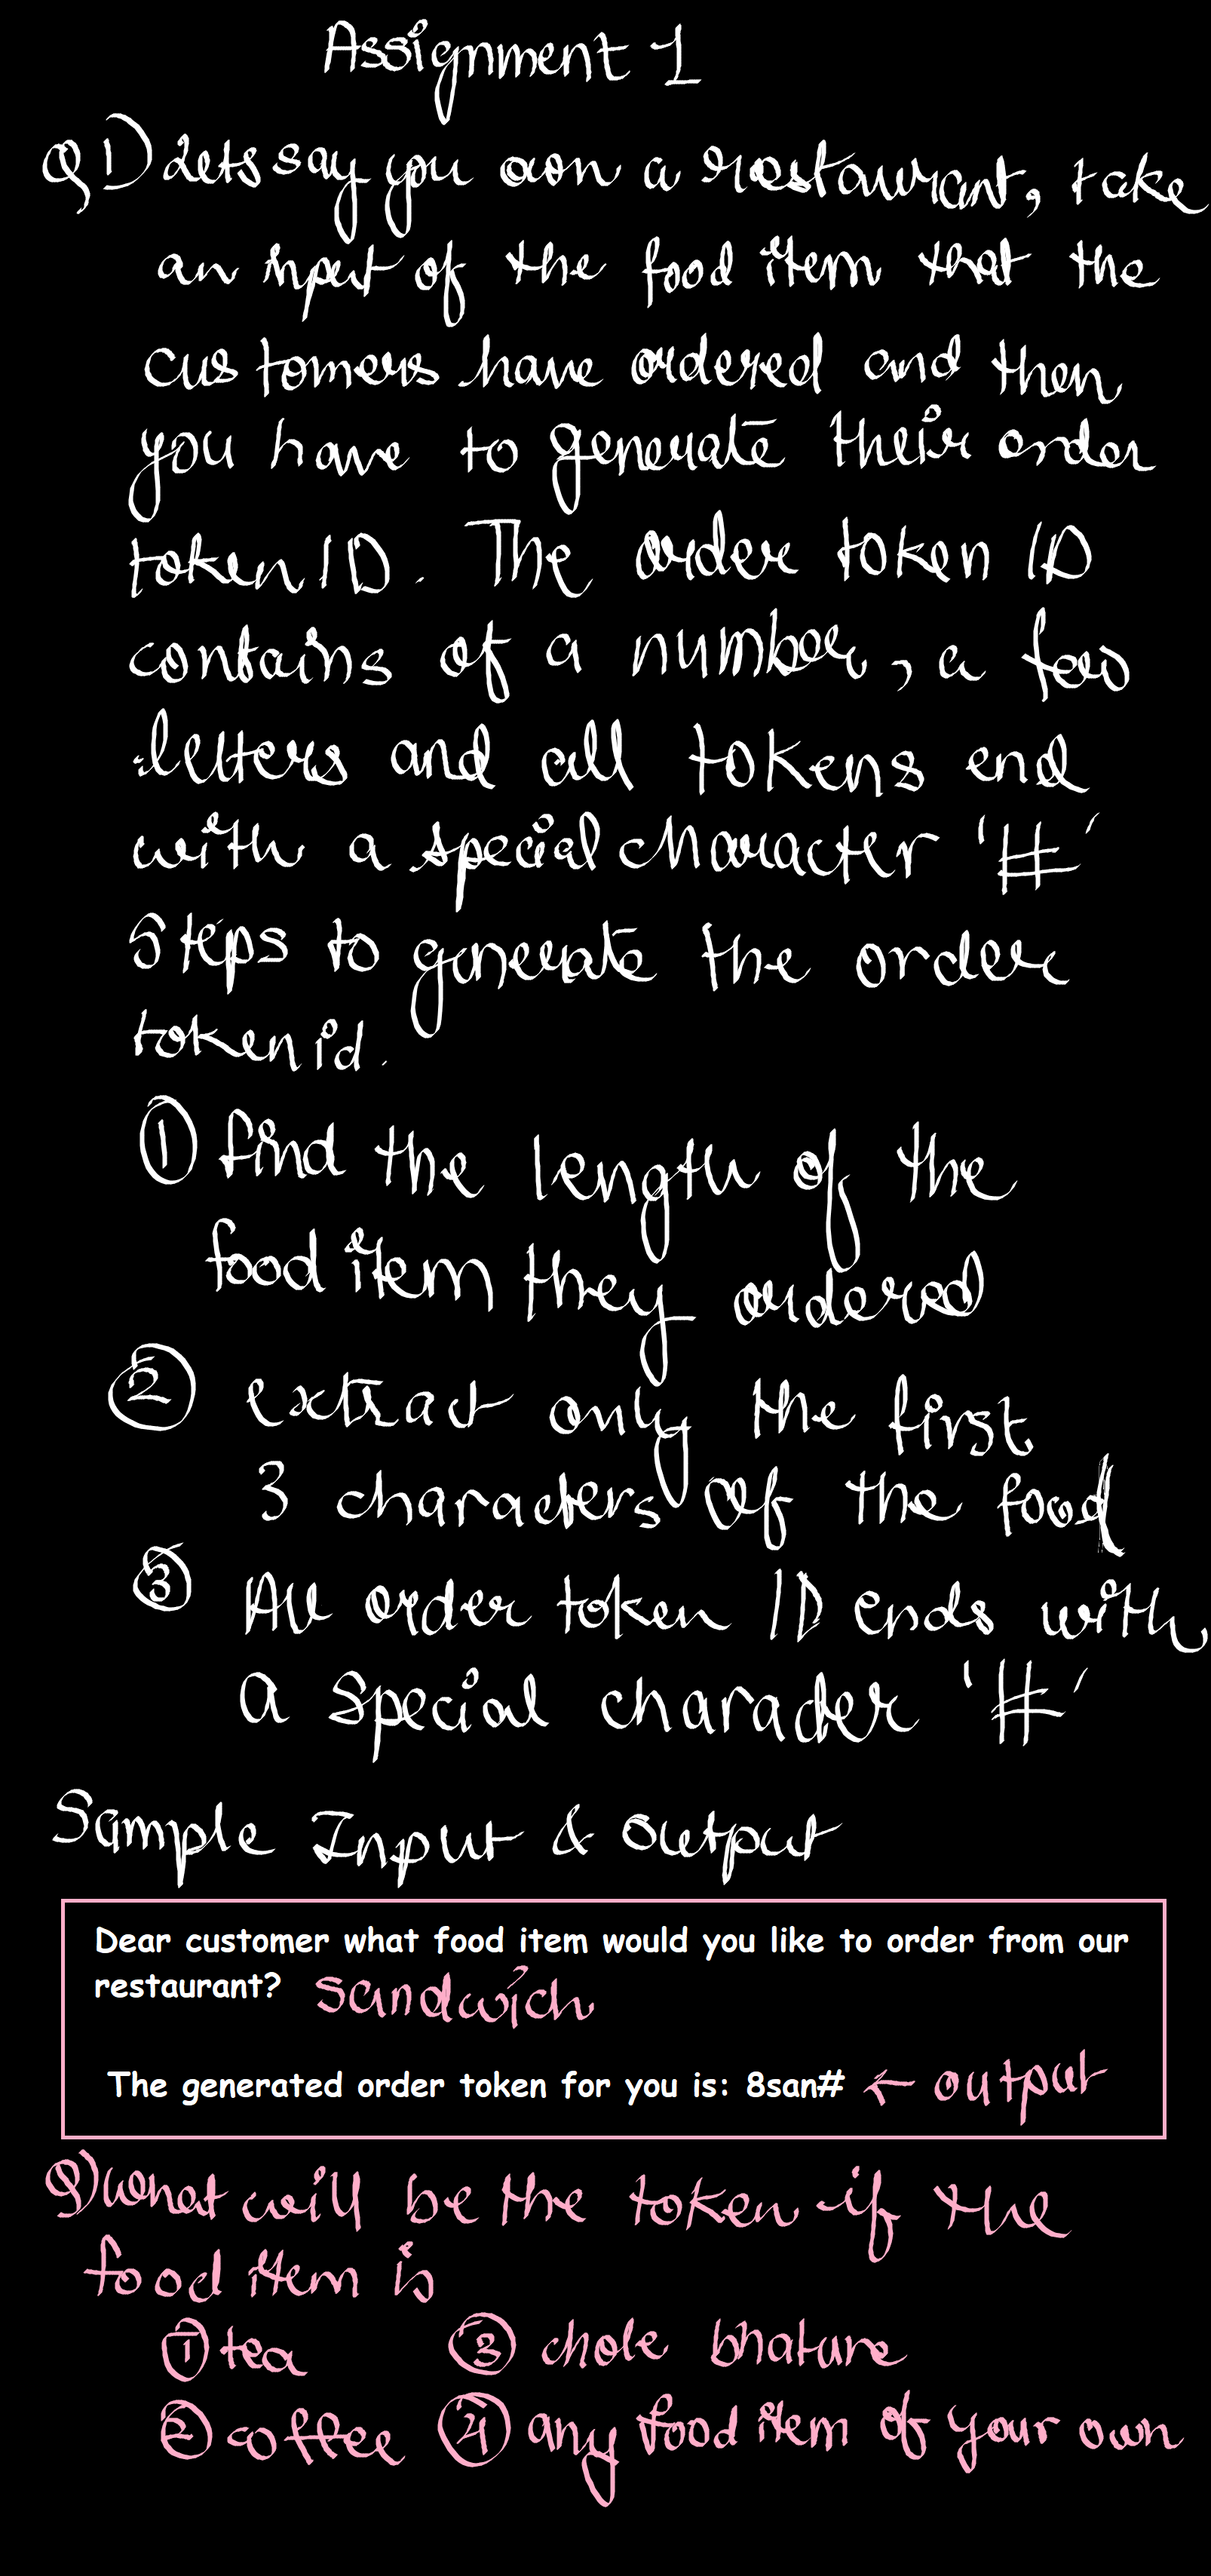 Assignment 1
Q1) Lets say you own a restaurant, take
an input of the food item that the
customers have ordered and then
you have to generate their order
token ID. The order token ID
contains of a number, a few
letters and all tokens end
with a special character '#'
Steps to generate the order
token id.
① find the length of the
food item they ordered
② extract only the first
3 characters of the food
③ All order token ID ends with
a special character '#'
Sample Input & Output
Dear customer what food item would you like to order from our
restaurant? sandwich
The generated order token for you is: 8san# ← output
Q) What will be the token if the
food item is
① tea ③ chole bhature
② coffee ④ any food item of your own